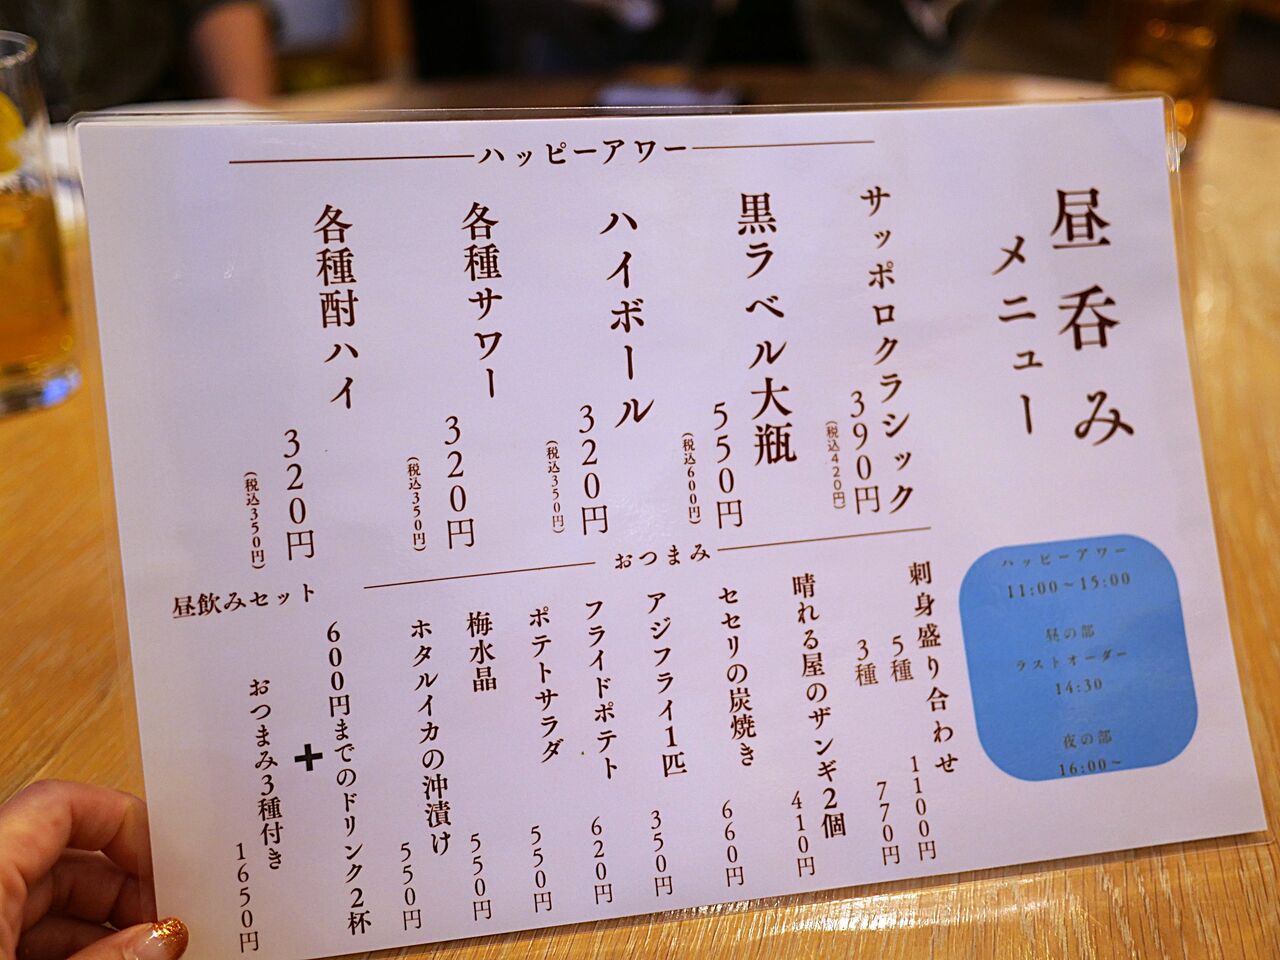 昼呑み
メニュー
ハッピーアワー
サッポロクラシック
390円
(税込420円)
黒ラベル大瓶
550円
(税込600円)
ハイボール
320円
(税込350円)
各種サワー
320円
(税込350円)
各種酎ハイ
320円
(税込350円)
ハッピーアワー
11:00〜15:00
昼の部
ラストオーダー
14:30
夜の部
16:00〜
おつまみ
刺身盛り合わせ
5種 1100円
3種 770円
晴れる屋のザンギ2個
410円
セセリの炭焼き
660円
アジフライ1匹
350円
フライドポテト
620円
ポテトサラダ
550円
梅水晶
550円
ホタルイカの沖漬け
550円
昼飲みセット
600円までのドリンク2杯
+
おつまみ3種付き
1650円